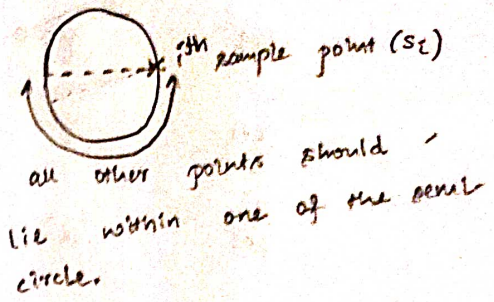 ith sample point (Si)
all other points should
lie within one of the semi-
circle.